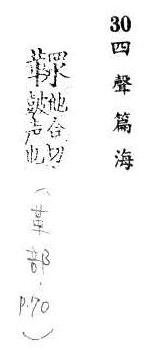 30 四聲篇海
他合切
皷声也
(革部.P.70)